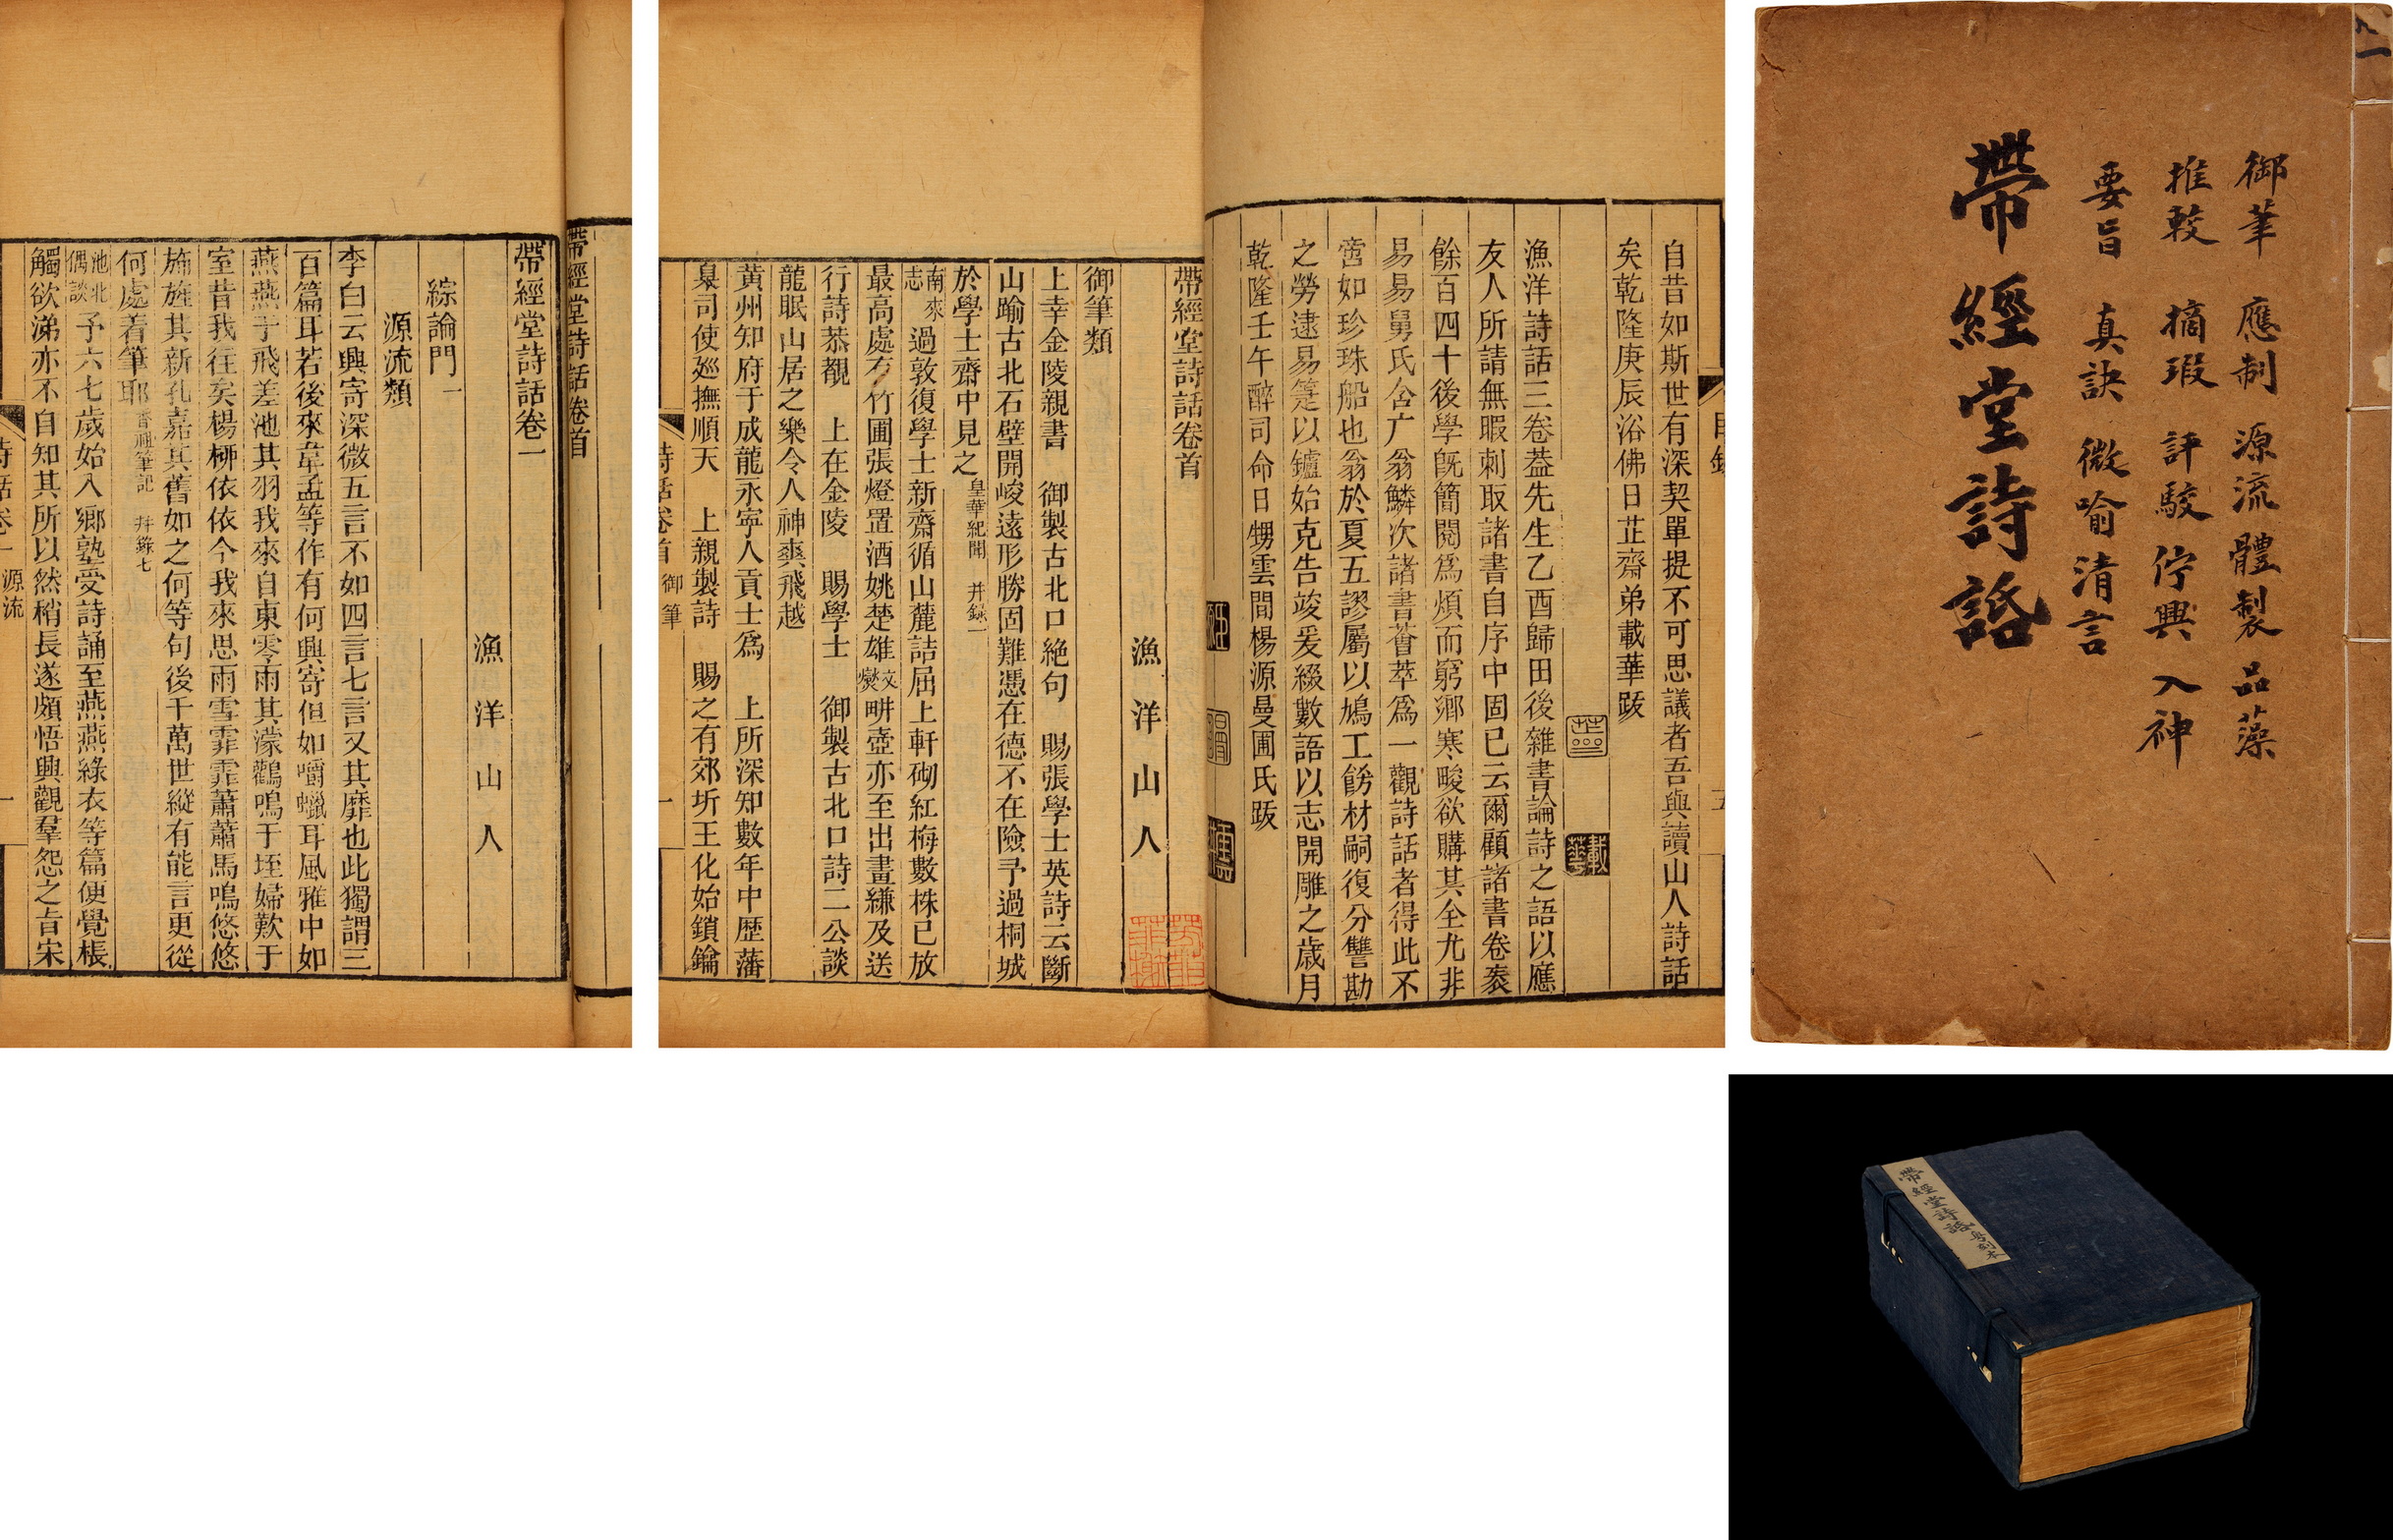 御筆 應制 源流 體製 品藻
推較 摘瑕 評駁 佇興 入神
要旨 真訣 微喻 清言
帶經堂詩話
自昔如斯世有深契單提不可思議者吾與讀山人詩話
矣乾隆庚辰浴佛日芷齋弟載華跋
載華
漁洋詩話三卷葢先生乙酉歸田後雜書論詩之語以應
友人所請無暇刺取諸書自序中固已云爾顧諸書卷袠
餘百四十後學旣簡閱爲煩而窮鄉寒畯欲購其全尤非
易易舅氏含广翁鱗次諸書薈萃爲一觀詩話者得此不
啻如珍珠船也翁於夏五謬屬以鳩工餝材嗣復分讐勘
之勞逮易箦以鑪始克告竣爰綴數語以志開雕之歲月
乾隆壬午醉司命日甥雲間楊源曼圃氏跋
帶經堂詩話卷首
漁洋山人
御筆類
上幸金陵親書 御製古北口絶句 賜張學士英詩云斷
山踰古北石壁開峻遠形勝固難憑在德不在險予過桐城
於學士齋中見之 皇華紀聞 幷錄一
南來志 過敦復學士新齋循山麓詰屈上軒砌紅梅數株已放
最高處有竹圃張燈置酒姚楚雄文燮畊壺亦至出畫縑及送
行詩恭覩 上在金陵 賜學士 御製古北口詩二公談
龍眠山居之樂令人神爽飛越
黄州知府于成龍永寧人貢士爲 上所深知數年中歷藩
臬司使廵撫順天 上親製詩 賜之有郊圻王化始鎖鑰
詩話卷首 御筆 一
帶經堂詩話卷首
帶經堂詩話卷一
漁洋山人
綜論門一
源流類
李白云興寄深微五言不如四言七言又其靡也此獨謂三
百篇耳若後來韋孟等作有何興寄但如嚼蠟耳風雅中如
燕燕于飛差池其羽我來自東零雨其濛鸛鳴于垤婦歎于
室昔我往矣楊栁依依今我來思雨雪霏霏蕭蕭馬鳴悠悠
斾旌其新孔嘉其舊如之何等句後千萬世縱有能言更從
何處着筆耶 香祖筆記 幷錄七
池北偶談 予六七歲始入鄉塾受詩誦至燕燕綠衣等篇便覺棖
觸欲涕亦不自知其所以然稍長遂頗悟興觀羣怨之旨宋
詩話卷一 源流 一
帶經堂詩話